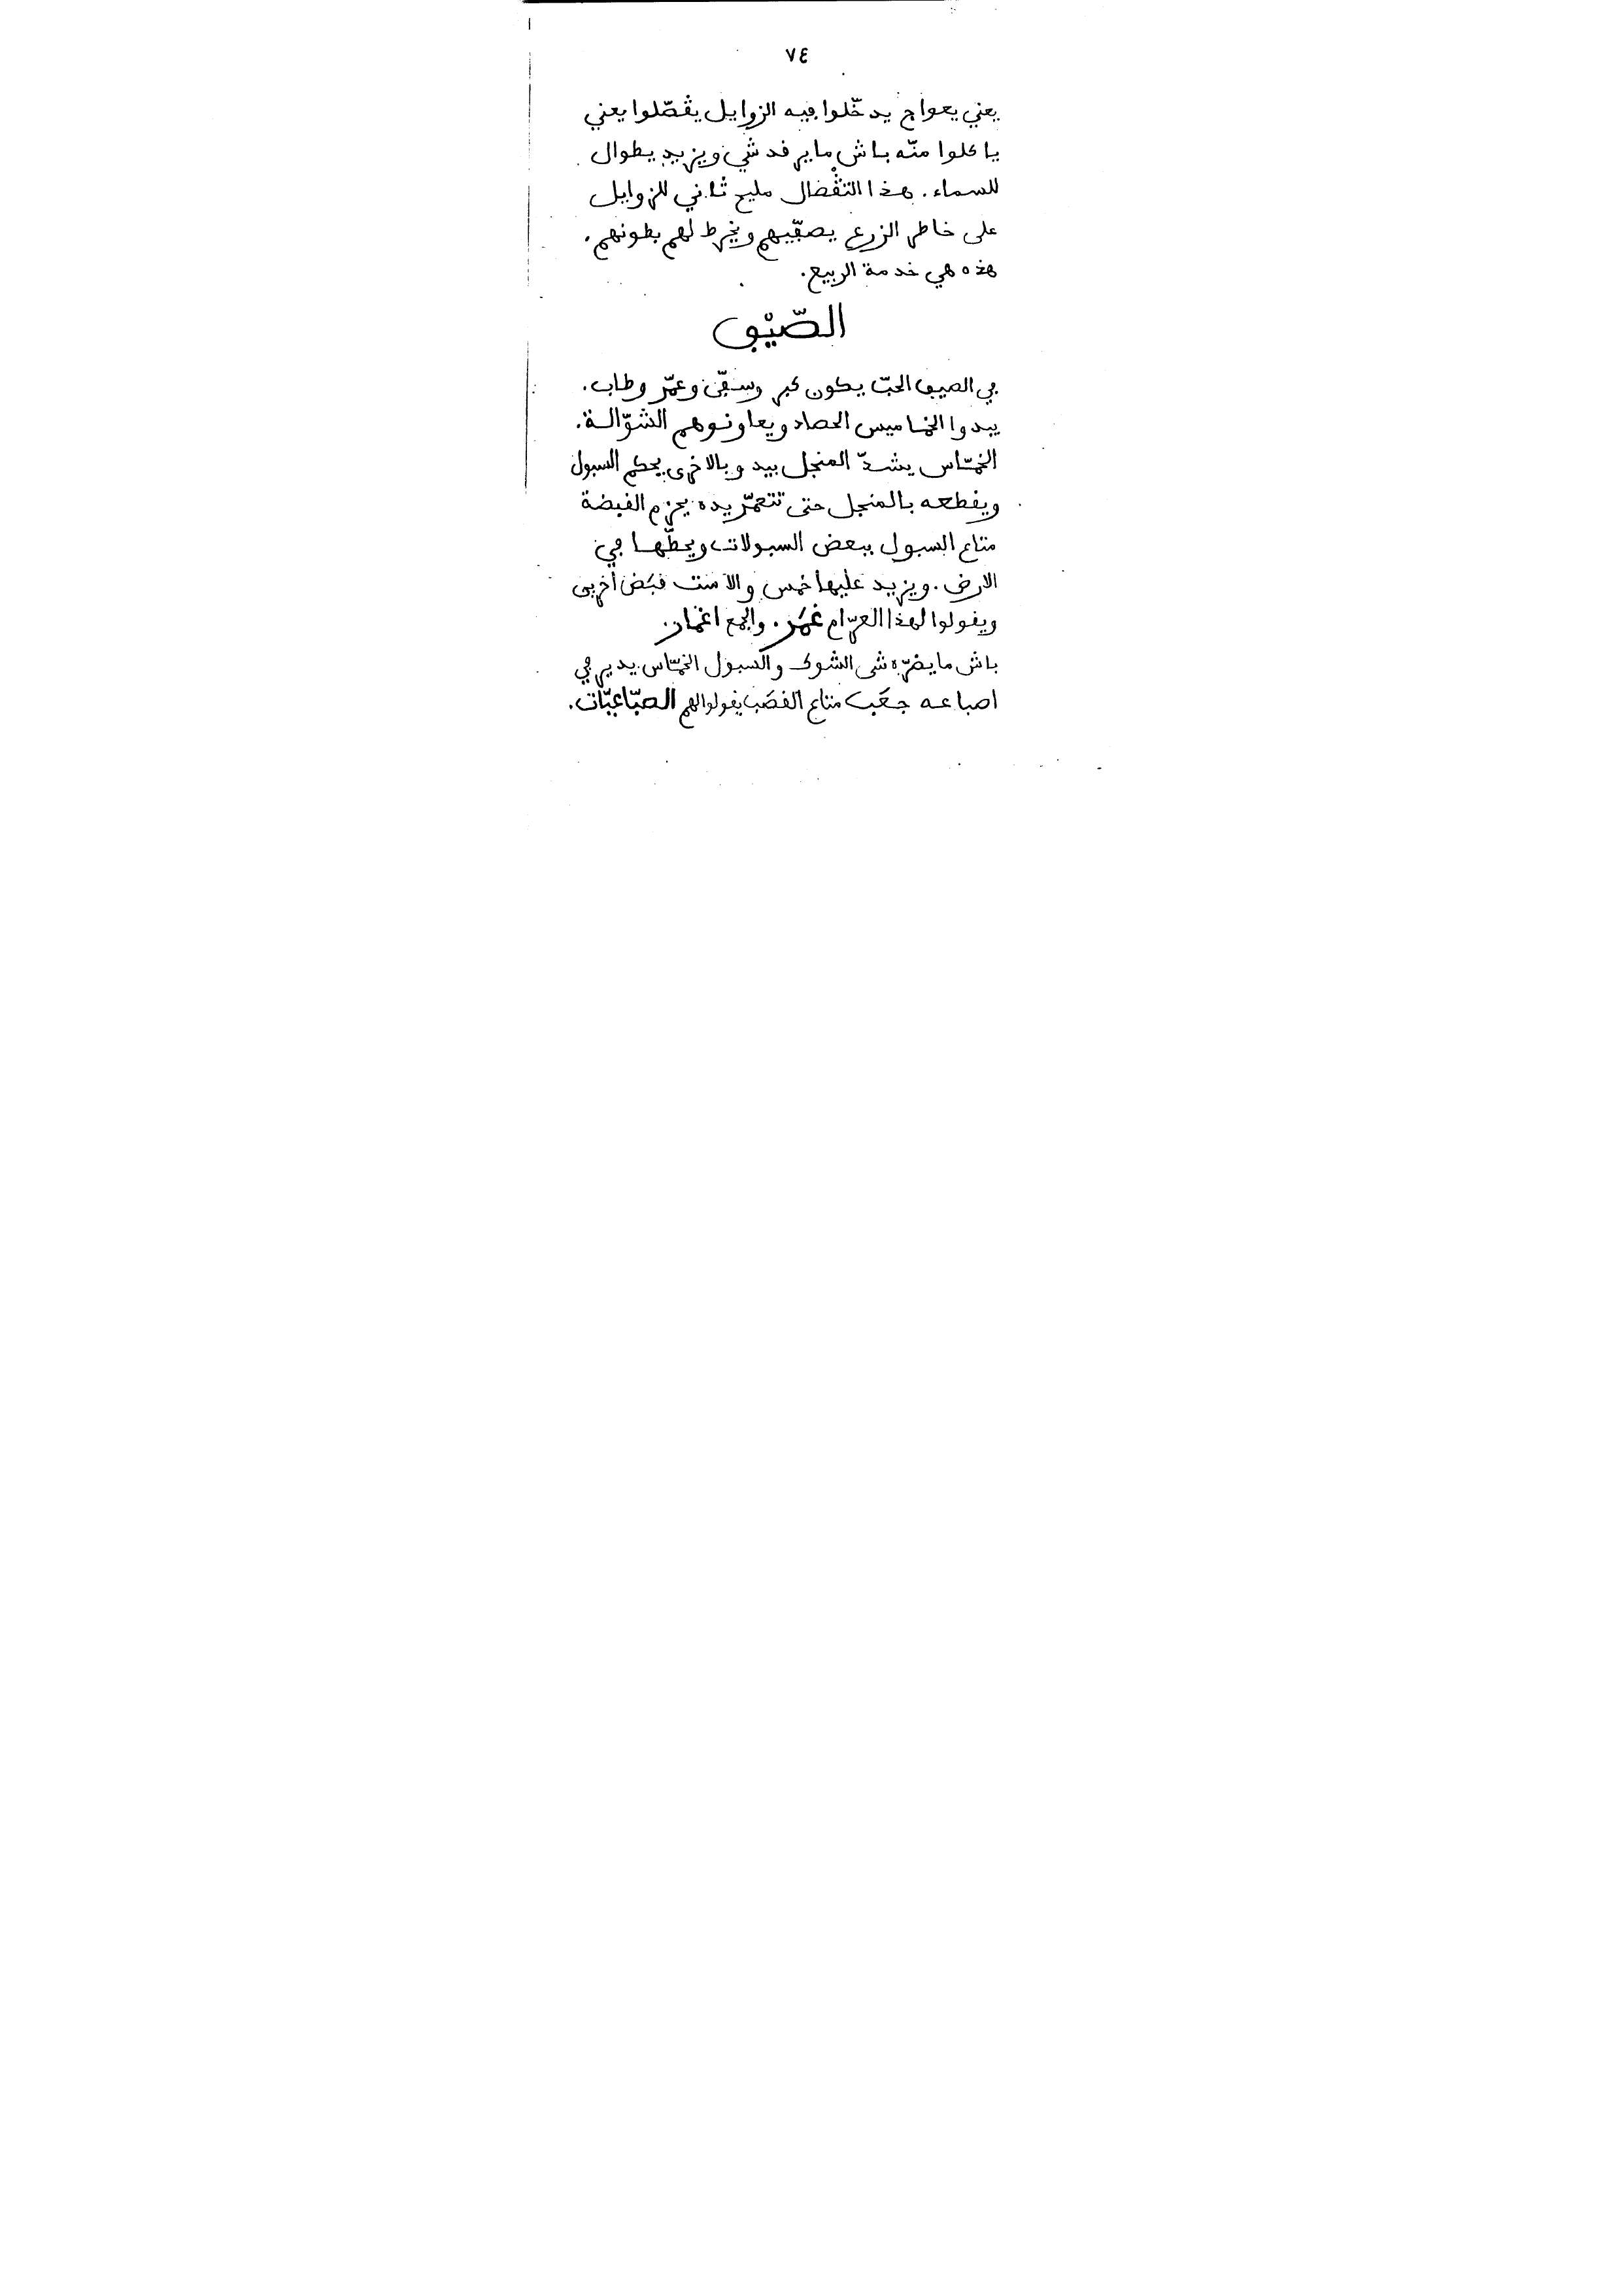 ٧٤
يعني يعواج يدخّلوا ڢيه الزوايل يڨصّلوا يعني
ياكلوا منّه باش ما يرفدشي ويزيد يطوال
للسماء. هذا التڨصال مليح ثاني للزوايل
على خاطر الزرع يصڢّيهم ويخرط لهم بطونهم.
هذه هي خدمة الربيع.
الصّيْڢ
ڢي الصيڢ الحبّ يكون كبر وسڢّى وعمّر وطاب.
يبدوا الخماميس الحصاد ويعاونوهم الشوّالة.
الخمّاس يشدّ المنجل بيد وبالاخرى يحكم السبول
ويفطعه بالمنجل حتى تتعمّر يده يحزم الفبضة
متاع السبول ببعض السبولات ويحطّها ڢي
الارض. ويزيد عليها خمس والا ست فبَض أخرى
ويفولوا لهذا العرّام غمَر. والجمع اغمار.
باش ما يضرّه شى الشوك والسبول الخمّاس يدير ڢي
اصباعه جعَب متاع الفصَب يفولوا لهم الصبّاعيّات.